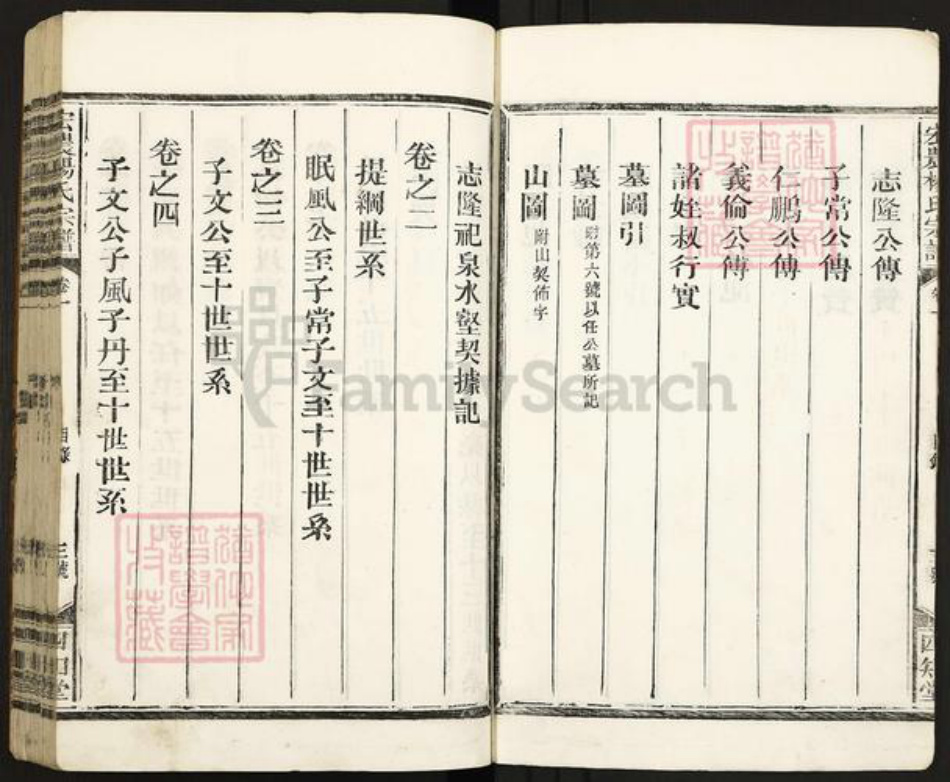 志隆公傳
子常公傳
仁鵬公傳
義倫公傳
諸姪叔行實
墓圖引
墓圖 附第六號以任公墓所記
山圖 附山契佈字
四知堂
志隆祀泉水壑契據記
卷之二
提綱世系
眠風公至子常子文至十世世系
卷之三
子文公至十世世系
卷之四
子文公子風子丹至十世世系
氏宗譜
卷一
目錄
三號
FamilySearch